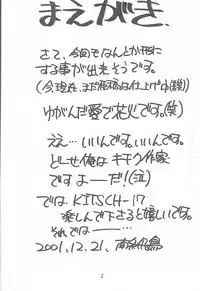 まえがき.
さて、今回でなんとか形に
する事が出来そうです。
(今現在、まだ原稿は仕上げ中(爆))
ゆがんだ愛で花火です。(笑)
ええ…いいんです。いいんです。
どーせ俺はキモヲタ作家
ですよーだ!(泣)
では、KITSCH-17
楽しんで下さると嬉しいです。
それでは――…
2001.12.21,
2